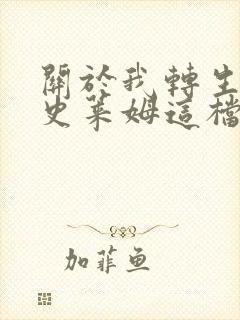 關於我轉生
史萊姆這檔
加菲鱼